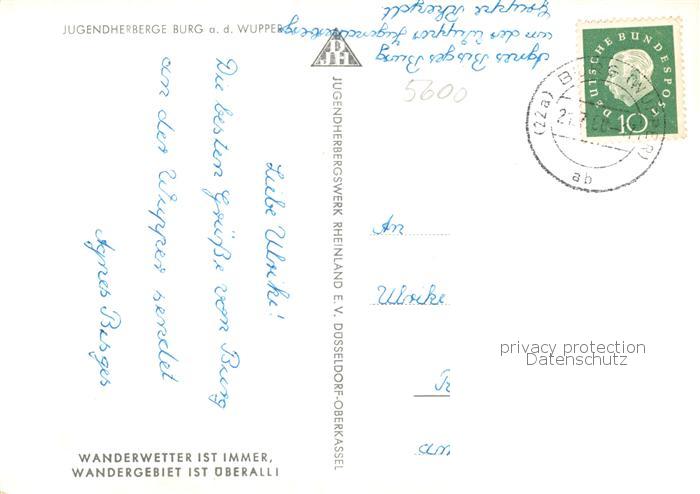 JUGENDHERBERGE BURG a. d. WUPPER
Agnes Burges Burg
an der Wupper Jugendherberge
Gruppe Rheydt
5600
DEUTSCHE BUNDESPOST
10
(22a) BURG (WUPPER)
ab
Liebe Ulrike!
Die besten Grüße von Burg
an der Wupper sendet
Agnes Burges
JUGENDHERBERGSWERK RHEINLAND E. V. DÜSSELDORF-OBERKASSEL
DJH
An
Ulrike
privacy protection
Datenschutz
WANDERWETTER IST IMMER,
WANDERGEBIET IST ÜBERALL!